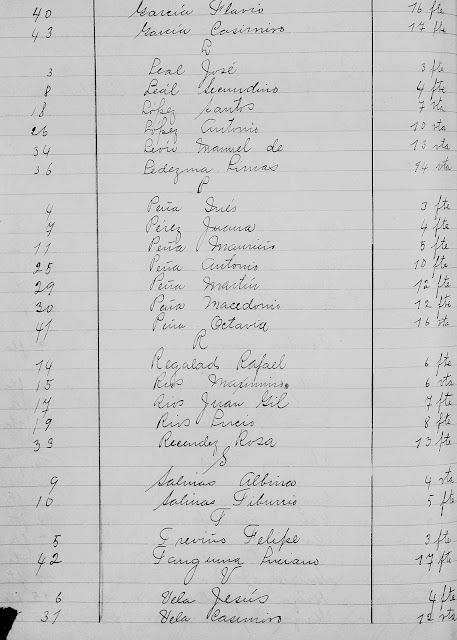 40 García Flavio 16 fte
43 García Casimiro 17 fte
L
3 Leal José 3 fte
8 Leál Secundino 4 fte
18 López Santos 7 vta
26 López Antonio 10 vta
34 León Manuel de 13 vta
36 Ledezma Dimas 14 vta
P
4 Peña Inés 3 fte
7 Pérez Juana 4 fte
11 Peña Mauricio 5 fte
25 Peña Antonio 10 fte
29 Peña Martín 12 fte
30 Peña Macedonio 12 fte
41 Peña Octavia 16 vta
R
14 Regalado Rafael 6 fte
15 Rios Maximino 6 vta
17 Rios Juan Gil 7 fte
19 Rios Lucio 8 fte
33 Recendez Rosa 13 fte
S
9 Salinas Albino 4 vta
10 Salinas Tiburcio 5 fte
T
5 Treviño Felipe 3 fte
42 Luciano 17 fte
V
6 Vela Jesús 4 fte
31 Vela Casimiro 12 vta